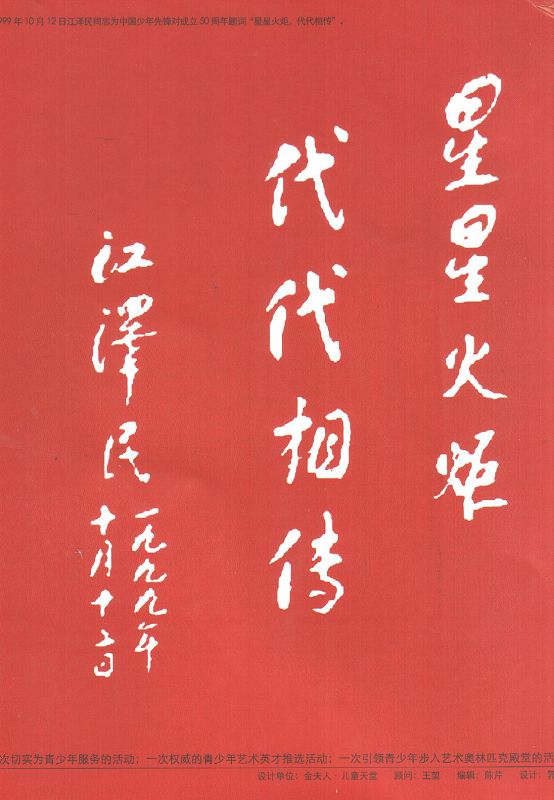 999年10月12日江泽民同志为中国少年先锋队成立50周年题词“星星火炬，代代相传”。
星星火炬
代代相传
江泽民
一九九九年
十月十二日
次切实为青少年服务的活动；一次权威的青少年艺术英才推选活动；一次引领青少年步入艺术奥林匹克殿堂的活
设计单位：金夫人·儿童天堂 顾问：王莹 编辑：陈芹 设计：